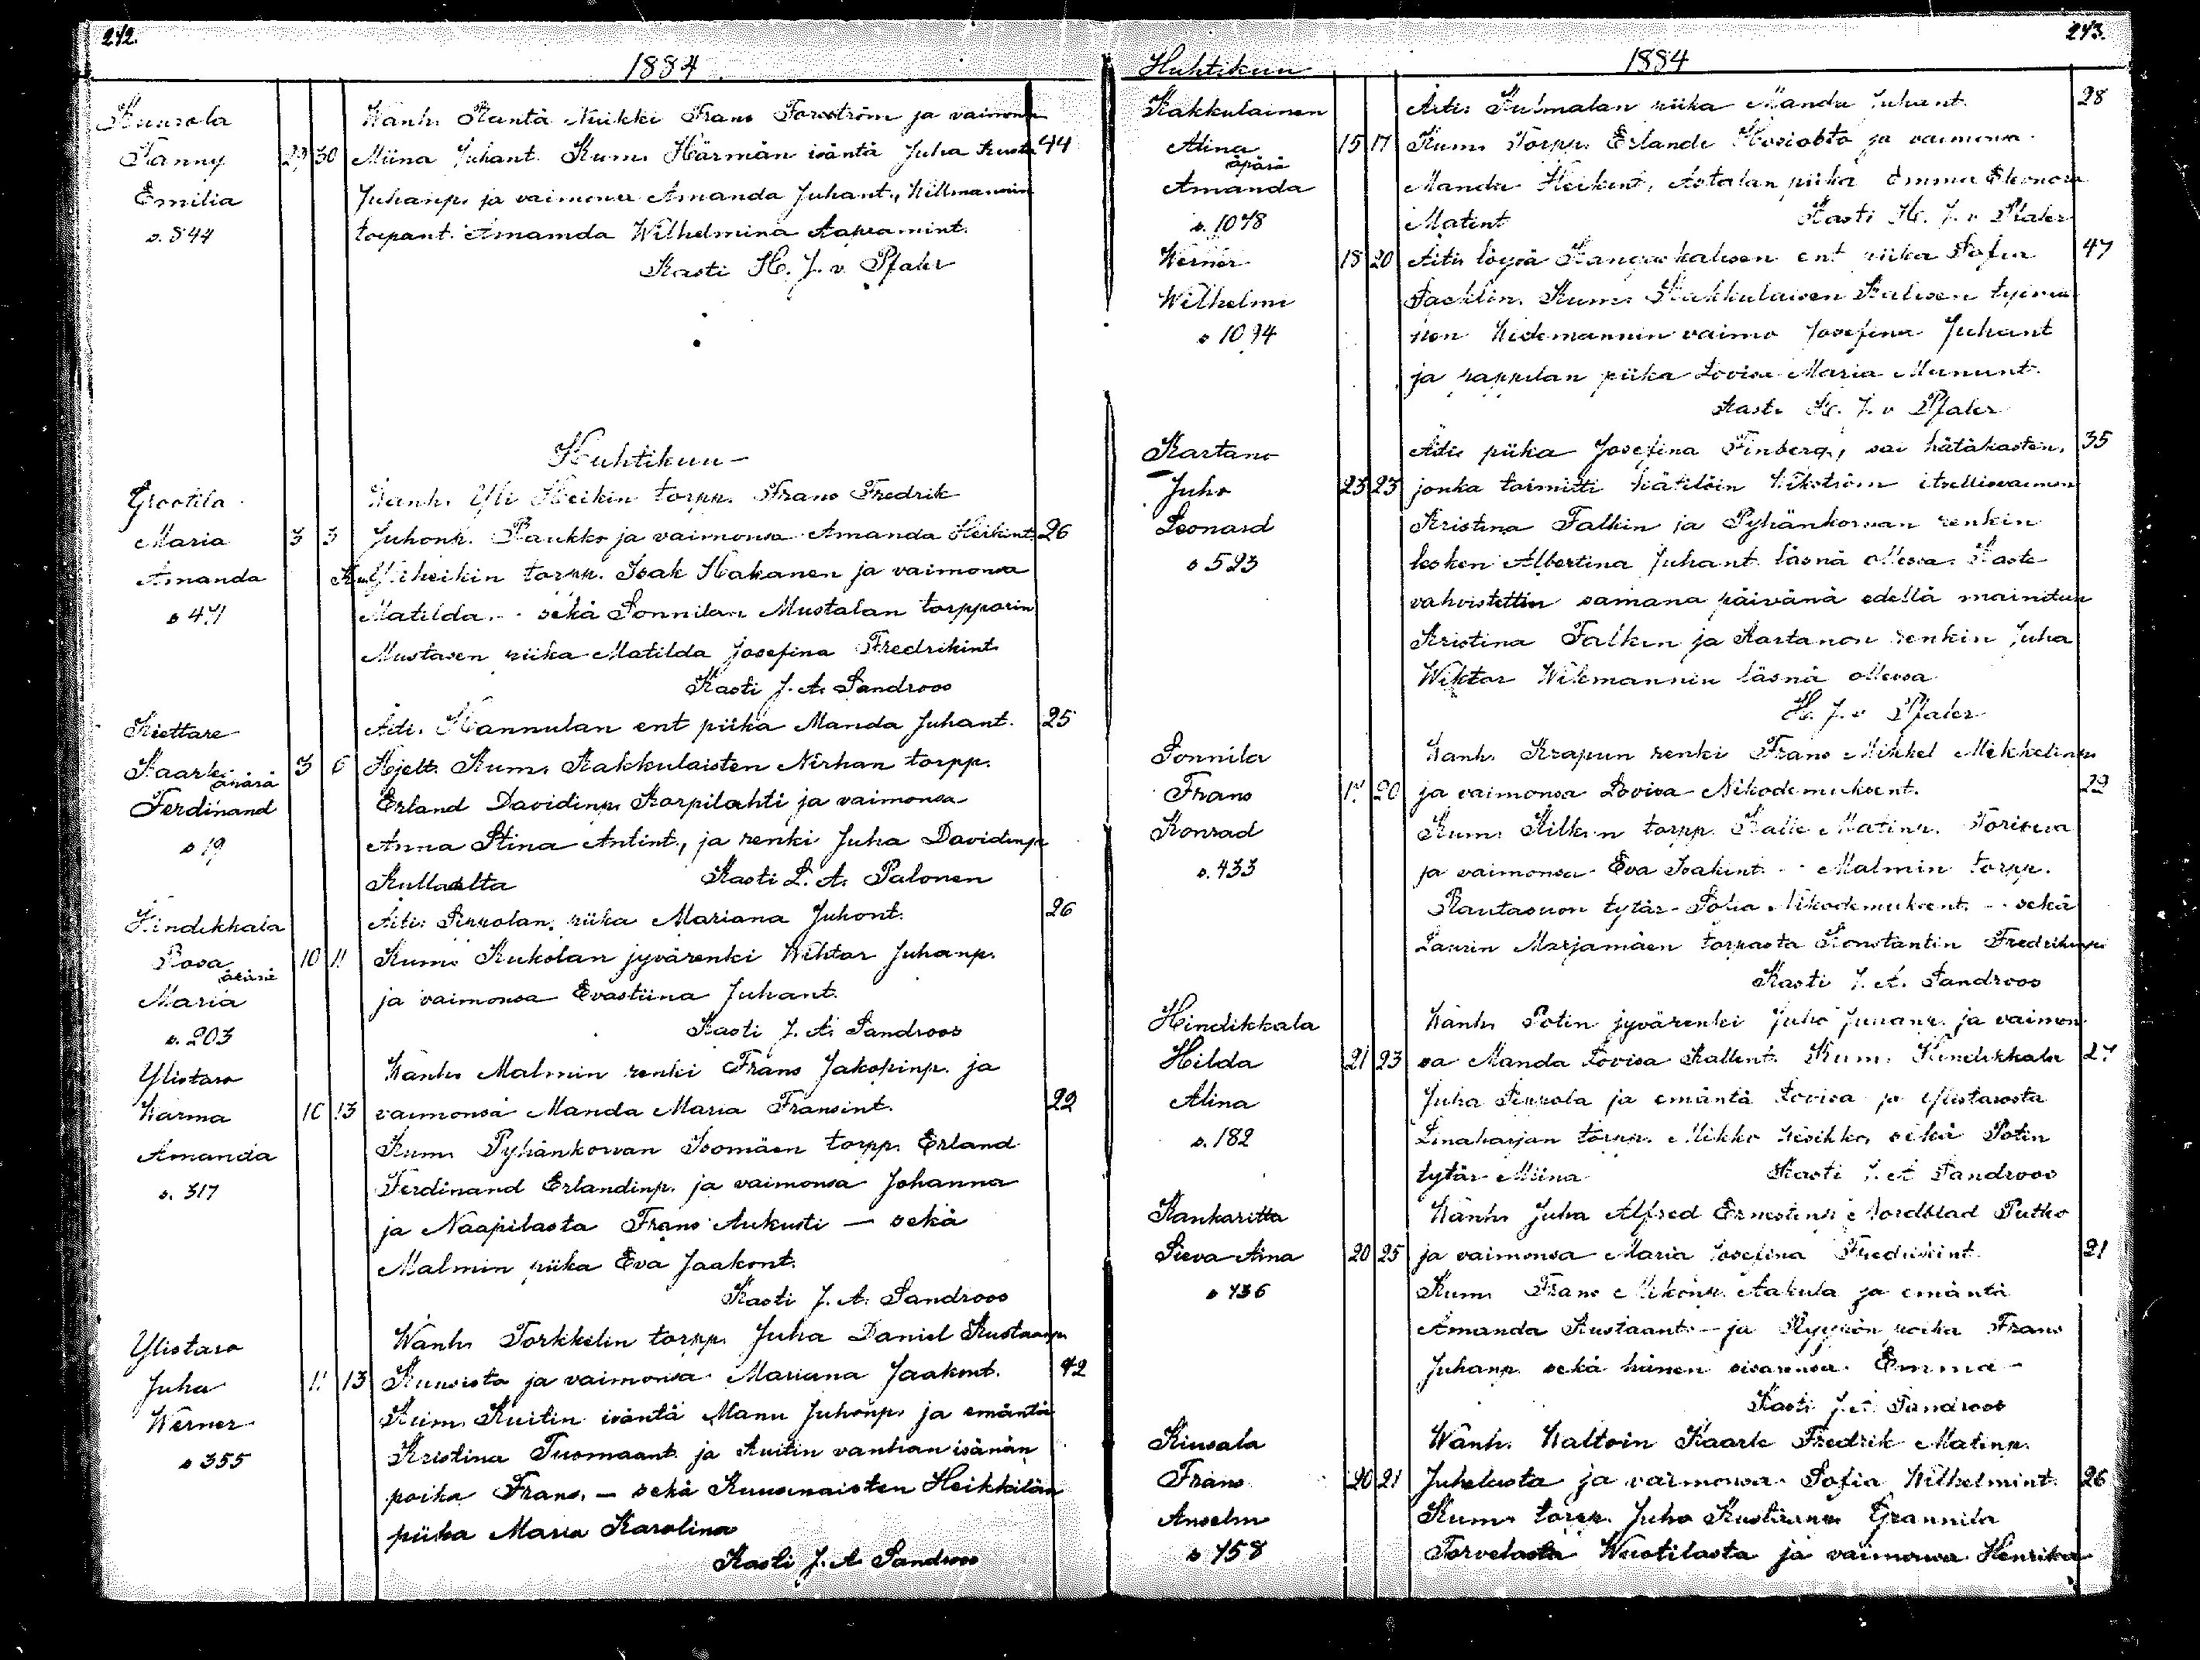 242.
1884
Kuurola
Wanh. Rantä Nuikki Frans Forsström ja vaimonsa
Fanny 29 30 Miina Juhant. Kum. Härmän isäntä Juha Kusta 44
Emilia Juhanp. ja vaimonsa Amanda Juhant., Willmannin
s. 544 torpant. Amanda Wilhelmina Aapramint.
Kasti H. J. v. Pfaler
Huhtikuu
Grootila Wanh. Yli Heikin torpp. Frans Fredrik
Maria 3 3 Juhonp. Paukko ja vaimonsa Amanda Heikint. 26
Amanda Kum. Yliheikin torpp. Isak Hakanen ja vaimonsa
s 471 Matilda. sekä Sonnilan Mustalan torpparin
Mustasen piika Matilda Josefina Fredrikint.
Kasti J. A. Sandroos
Kiettare Äiti. Hannulan ent piika Manda Juhant. 25
Kaarle 3 6 Hjelt. Kum. Kakkulaisten Nirhan torpp.
äpärä
Ferdinand Erland Davidinp. Karpilahti ja vaimonsa
s 19 Anna Stina Antint., ja renki Juha Davidinp.
Kullaalta Kasti L. A. Palonen
Hindikkala Äiti. Sirrolan piika Mariana Juhont. 26
Rosa 10 11 Kum. Kukolan jyvärenki Wiktor Juhanp.
äpärä
Maria ja vaimonsa Evastiina Juhant.
s. 203 Kasti J. A. Sandroos
Ylistaro Wanh. Malmin renki Frans Jakopinp. ja
Warma 10 13 vaimonsa Manda Maria Fransint. 22
Amanda Kum. Pyhänkorvan Isomäen torpp. Erland
s. 317 Ferdinand Erlandinp. ja vaimonsa Johanna
ja Naapilasta Frans Aukusti — sekä
Malmin piika Eva Jaakont.
Kasti J. A. Sandroos
Ylistaro Wanh. Torkkelin torpp. Juha Daniel Kustaanp.
Juha 11 13 Kuusista ja vaimonsa Mariana Jaakont. 42
Werner Kum. Kuitin isäntä Manu Juhonp. ja emäntä
s 355 Kristina Tuomaant. ja Kuitin vanhan isännän
poika Frans. — sekä Kuusmaisten Heikkilän
piika Maria Karolina
Kasti J. A. Sandroos
243.
Huhtikuu 1884
Kakkulainen Äiti. Kulmalan piika Manda Juhant. 28
Alina 15 17 Kum. Torpp. Erlandi Kosiahto ja vaimonsa
äpärä
Amanda Manda Heikint, Astalan piika Emma Eleonora
s. 1078 Matint Kasti H. J. v. Pfaler
Werner 18 20 Äiti löysä Kangaskalisen ent piika Sofia 47
Wilhelmi Facklin. Kum. Kakkulaisen Kalisen
s 1094 Widemannin vaimo Josefina Juhant
ja pappilan piika Lovisa Maria Manunt.
Kasti H. J. v Pfaler
Kartano Äiti piika Josefina Finberg, sai hätäkasteen, 35
Juho 23 23 jonka toimitti kätilöin Wikström itsellisvaimon
Leonard Kristina Falkin ja Pyhänkorvan renkin
s 593 lesken Albertina Juhant. läsnä ollessa. Kaste
vahvistettiin samana päivänä edellä mainitun
Kristina Falkin ja Kartanon renkin Juha
Wiktor Wikmannin läsnä ollessa
H. J. v Pfaler
Sonnila Wanh. Krapun renki Frans Mikkel Mikkelinp.
Frans 17 20 ja vaimonsa Lovisa Nikodemuksent. 29
Konrad Kum. torpp. Kalle Matinp.
s. 433 ja vaimonsa Eva Isakint. Malmin torpp.
Rautasuon tytär Sofia Nikodemuksent. sekä
Laurin Marjamäen torpasta Konstantin Fredrikinp.
Kasti J. A. Sandroos
Hindikkala Wanh. Potin jyvärenki Juho Juhanp. ja vaimon
Hilda 21 23 sa Manda Lovisa Kallent. Kum. Hindikkala 27
Alina Juha Sirrola ja emäntä Lovisa ja Ylistarosta
s. 182 Linaharjan torpp. Mikko sekä Potin
tytär Miina Kasti J. A Sandroos
Kankaritta Wanh. Juha Alfred Ernestinp. Nordblad Putko
Sieva Aina 20 25 ja vaimonsa Maria Josefina Fredrikint. 21
s 436 Kum. Frans Mikonp. Aakula ja emäntä
Amanda Kustaant. — ja Ryykön poika Frans
Juhanp. sekä hänen sisarensa Emma —
Kasti J. A. Sandroos
Kiusala Wanh. Waltoin Kaarle Fredrik Matinp.
Frans 20 21 Juhelasta ja vaimonsa Sofia Wilhelmint. 26
Anselm Kum. torpp. Juho Kustaanp. Grannila
s 458 Torvelasta Wuotilasta ja vaimonsa Henrika